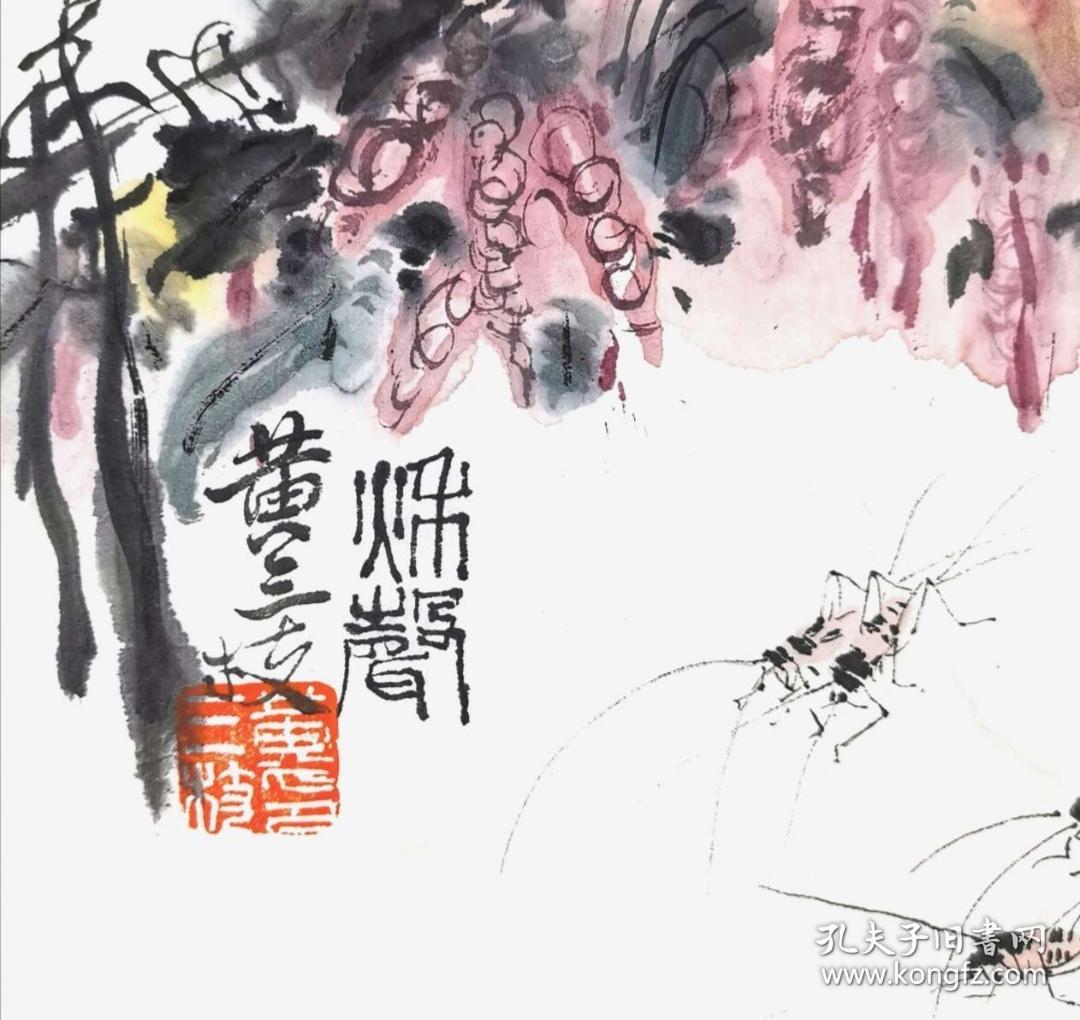 秌聲
黄三枝
三枝
孔夫子旧書网
www.kongfz.com